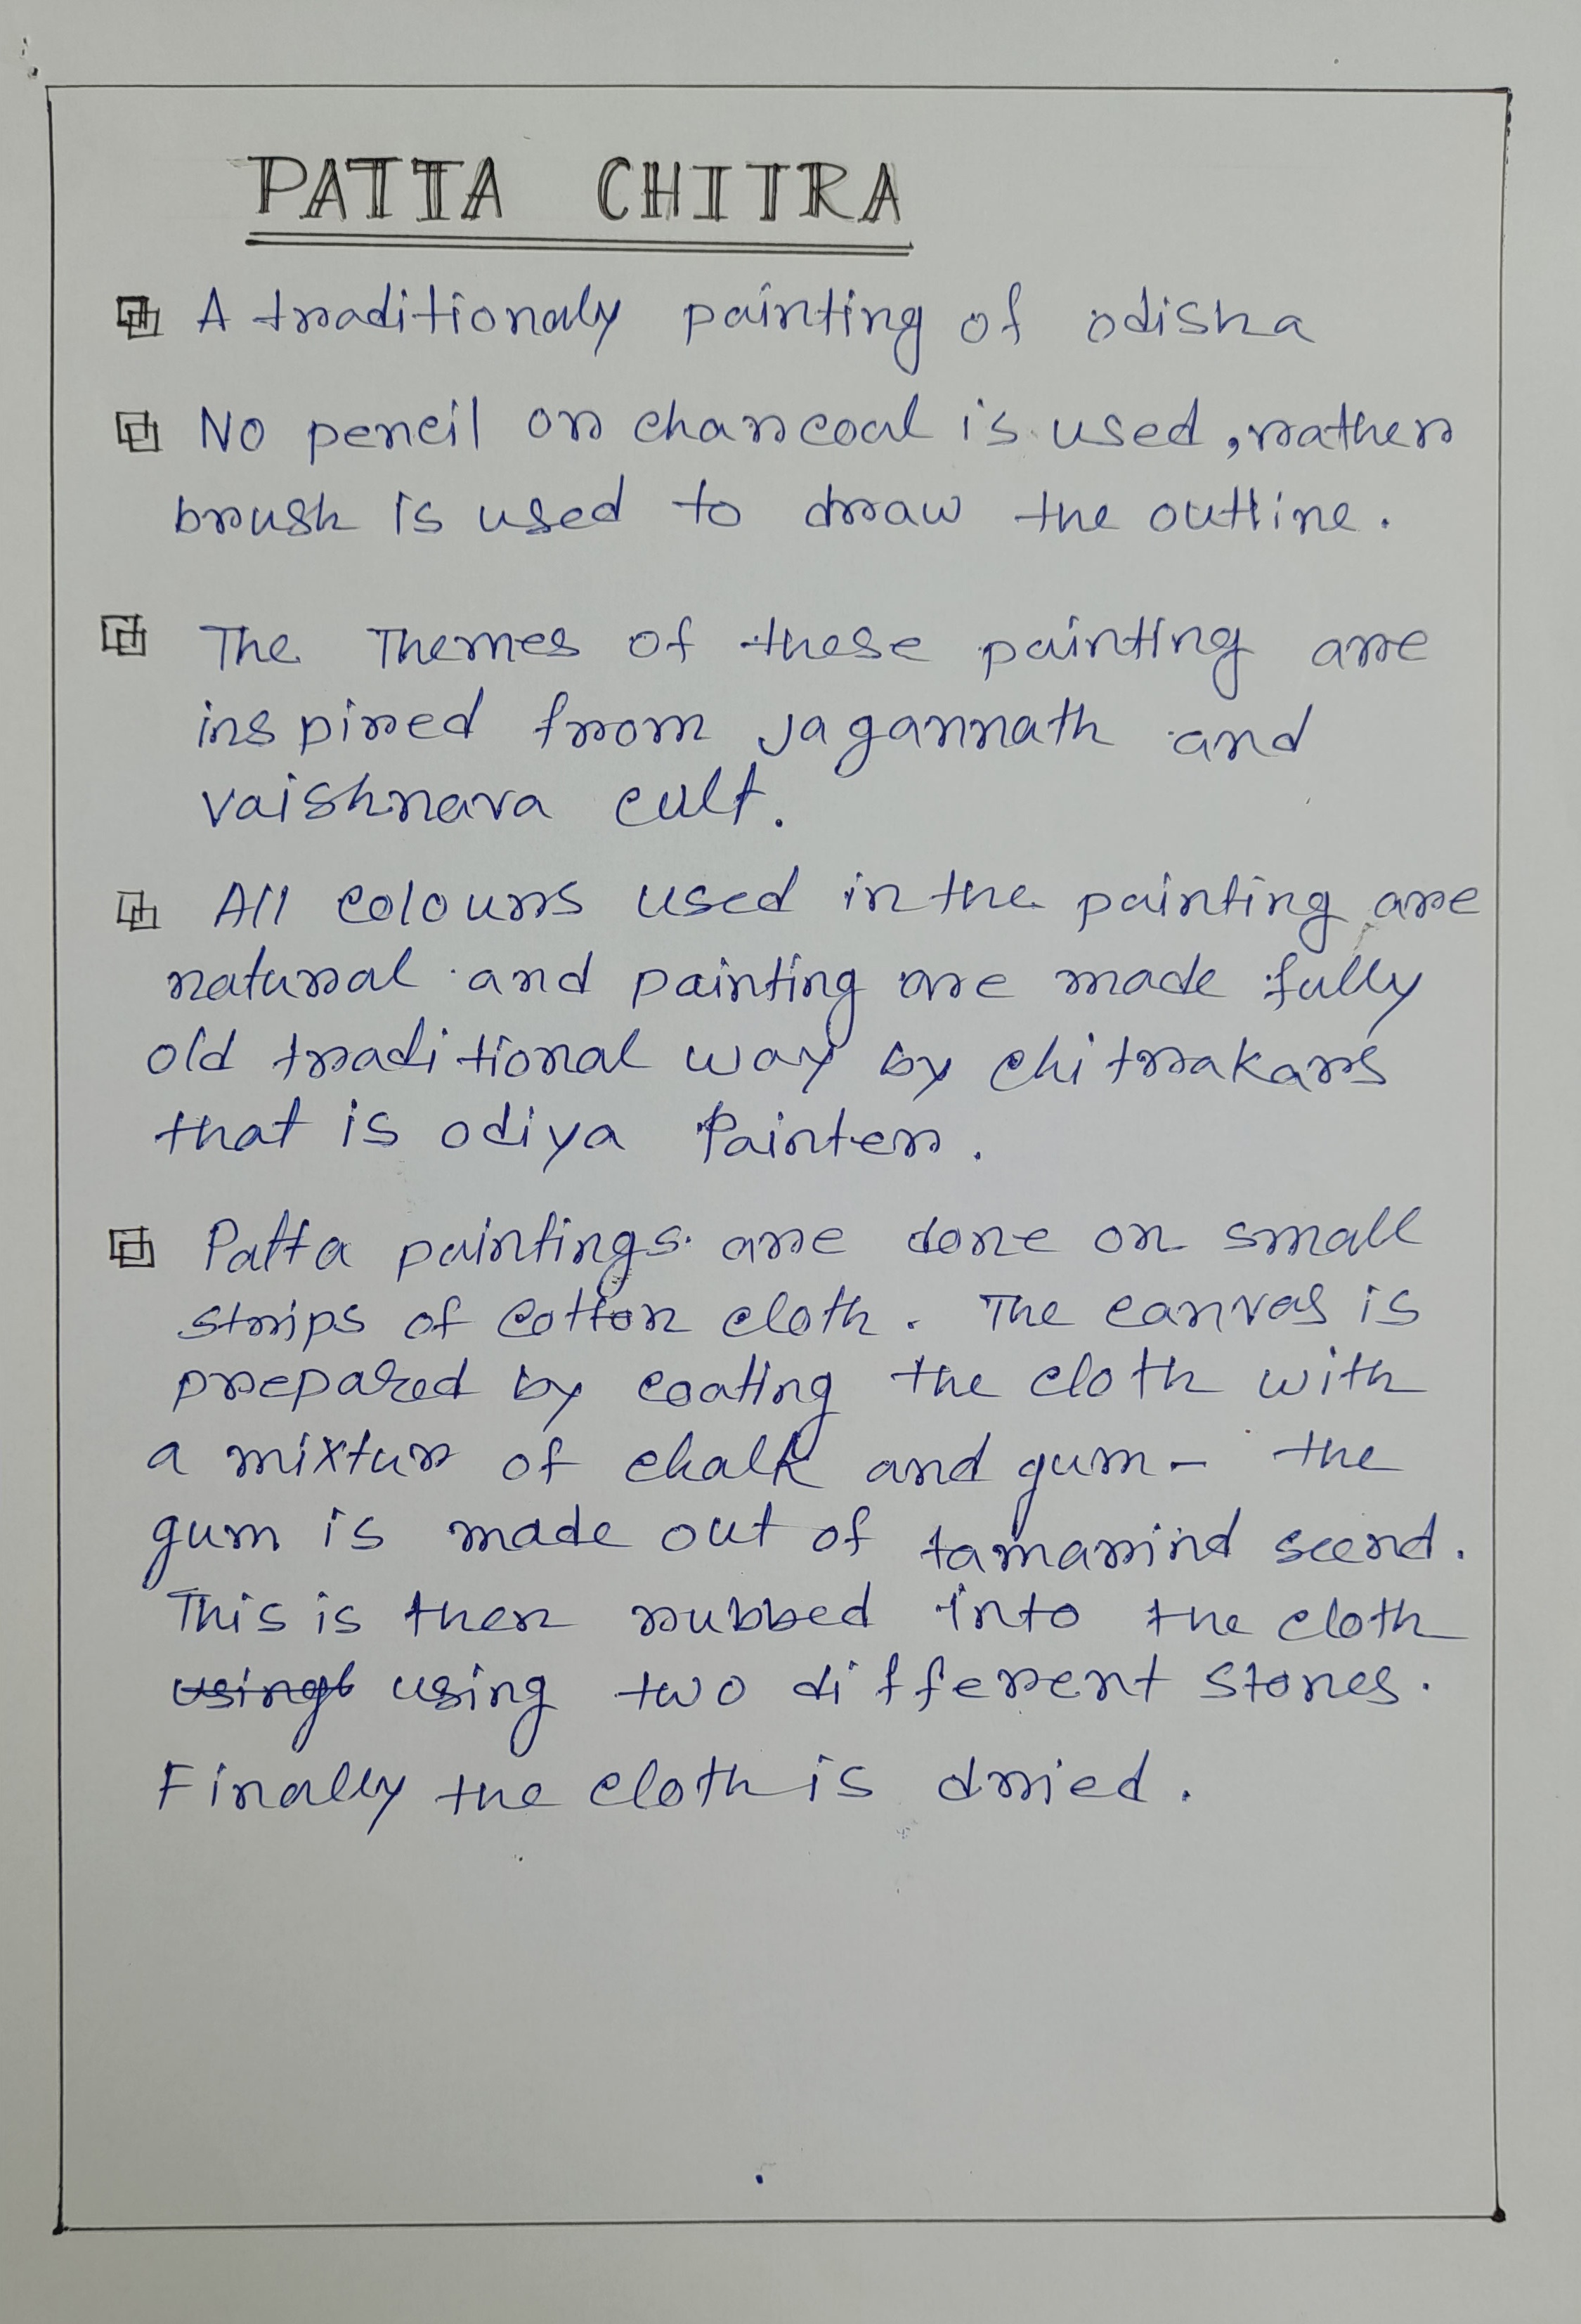 PATTA CHITRA
A traditionaly painting of odisha
No pencil or charcoal is used, rather
brush is used to draw the outline.
The Themes of these painting are
inspired from Jagannath and
vaishnava cult.
All colours used in the painting are
natural and painting are made fully
old traditional way by chitrakars
that is odiya Painter.
Patta paintings are done on small
strips of cotton cloth. The canvas is
prepared by coating the cloth with
a mixtur of chalk and gum - the
gum is made out of tamarind seend.
This is then rubbed into the cloth
using using two different stones.
Finally the cloth is dried.